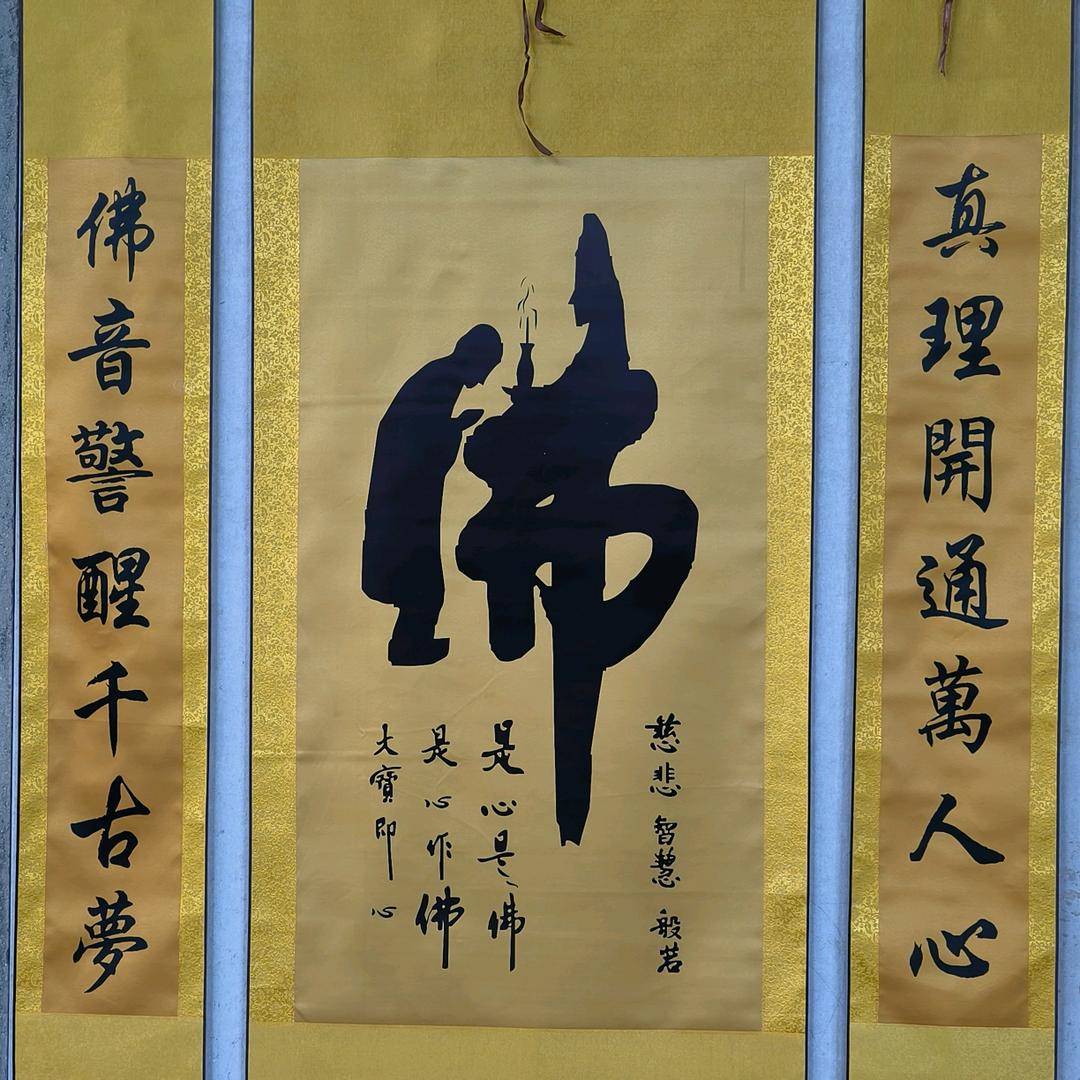 真理開通萬人心
佛
慈悲智慧般若
是心是佛
是心作佛
大寶即心
佛音警醒千古夢